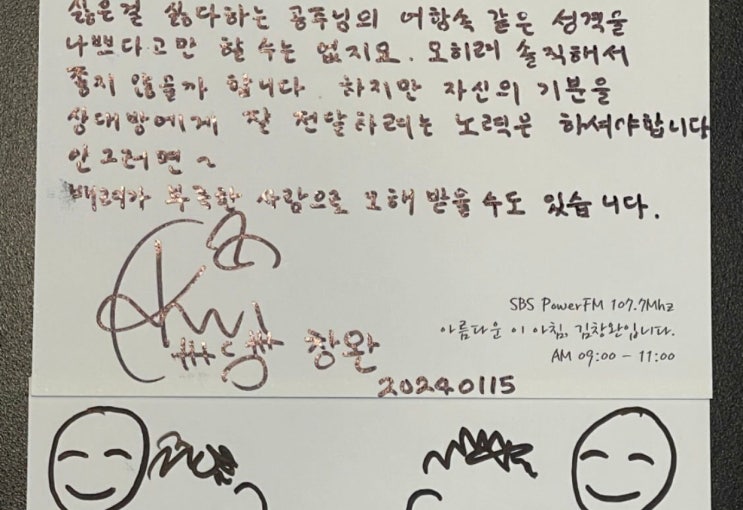 싫은걸 싫다하는 공주님의 어항속 같은 성격을
나쁘다고만 할 수는 없지요. 오히려 솔직해서
좋지 않을까 합니다 하지만 자신의 기분을
상대방에게 잘 전달하려는 노력은 하셔야합니다
안그러면 ~
배려가 부족한 사람으로 오해 받을 수도 있습니다.
창완
SBS PowerFM 107.7Mhz
아름다운 이 아침, 김창완입니다.
AM 09:00 - 11:00
20240115